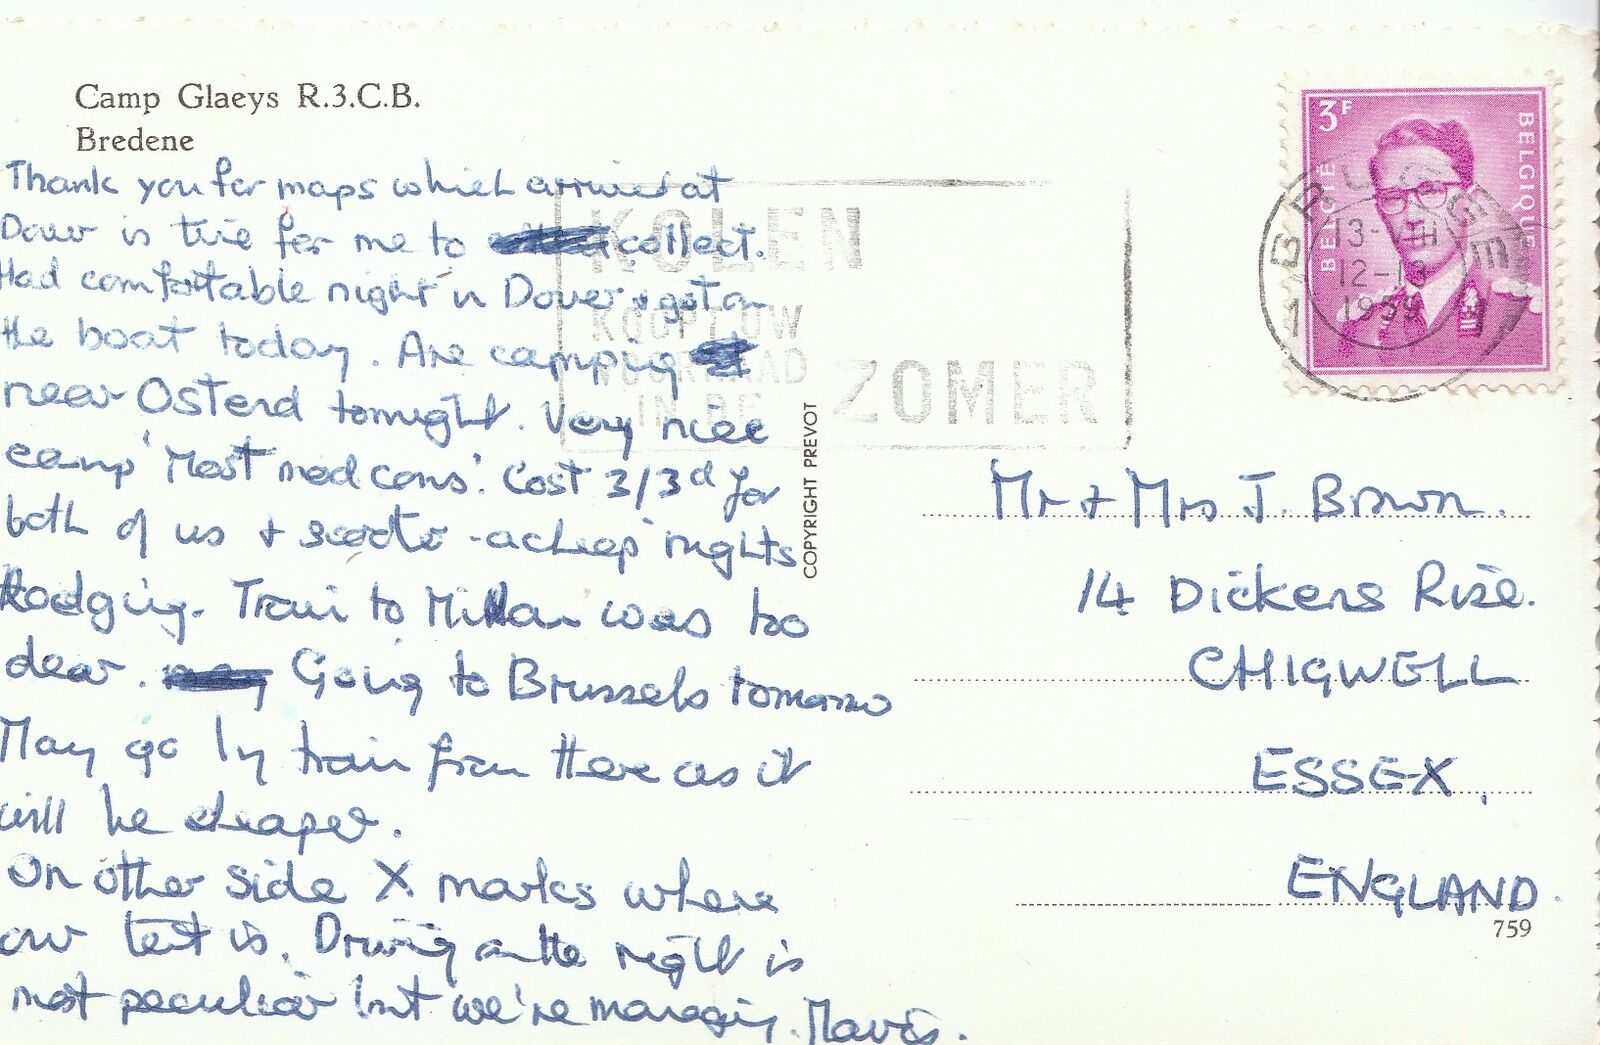 Camp Glaeys R.3.C.B.
Bredene
Thank you for maps which arrived at
Dover in time for me to collect.
Had comfortable night in Dover & got on
the boat today. Are camping
near Ostend tonight. Very nice
camp 'Most mod cons'. Cost 3/3d for
both of us + scooter - a cheap nights
lodging. Train to Milan was too
dear. Going to Brussels tomorrow
May go by train from there as it
will be cheaper.
On other side X marks where
our tent is. Driving on the right is
most peculiar but we're managing. Mavis.
COPYRIGHT PREVOT
KOLEN
KOOPT UW
VOORRAAD
IN DE ZOMER
3F
BELGIE
BELGIQUE
BRUGGE
13-VIII
12-13
1959
1 1
Mr + Mrs J. Brown.
14 Dickens Rise.
CHIGWELL
ESSEX,
ENGLAND.
759